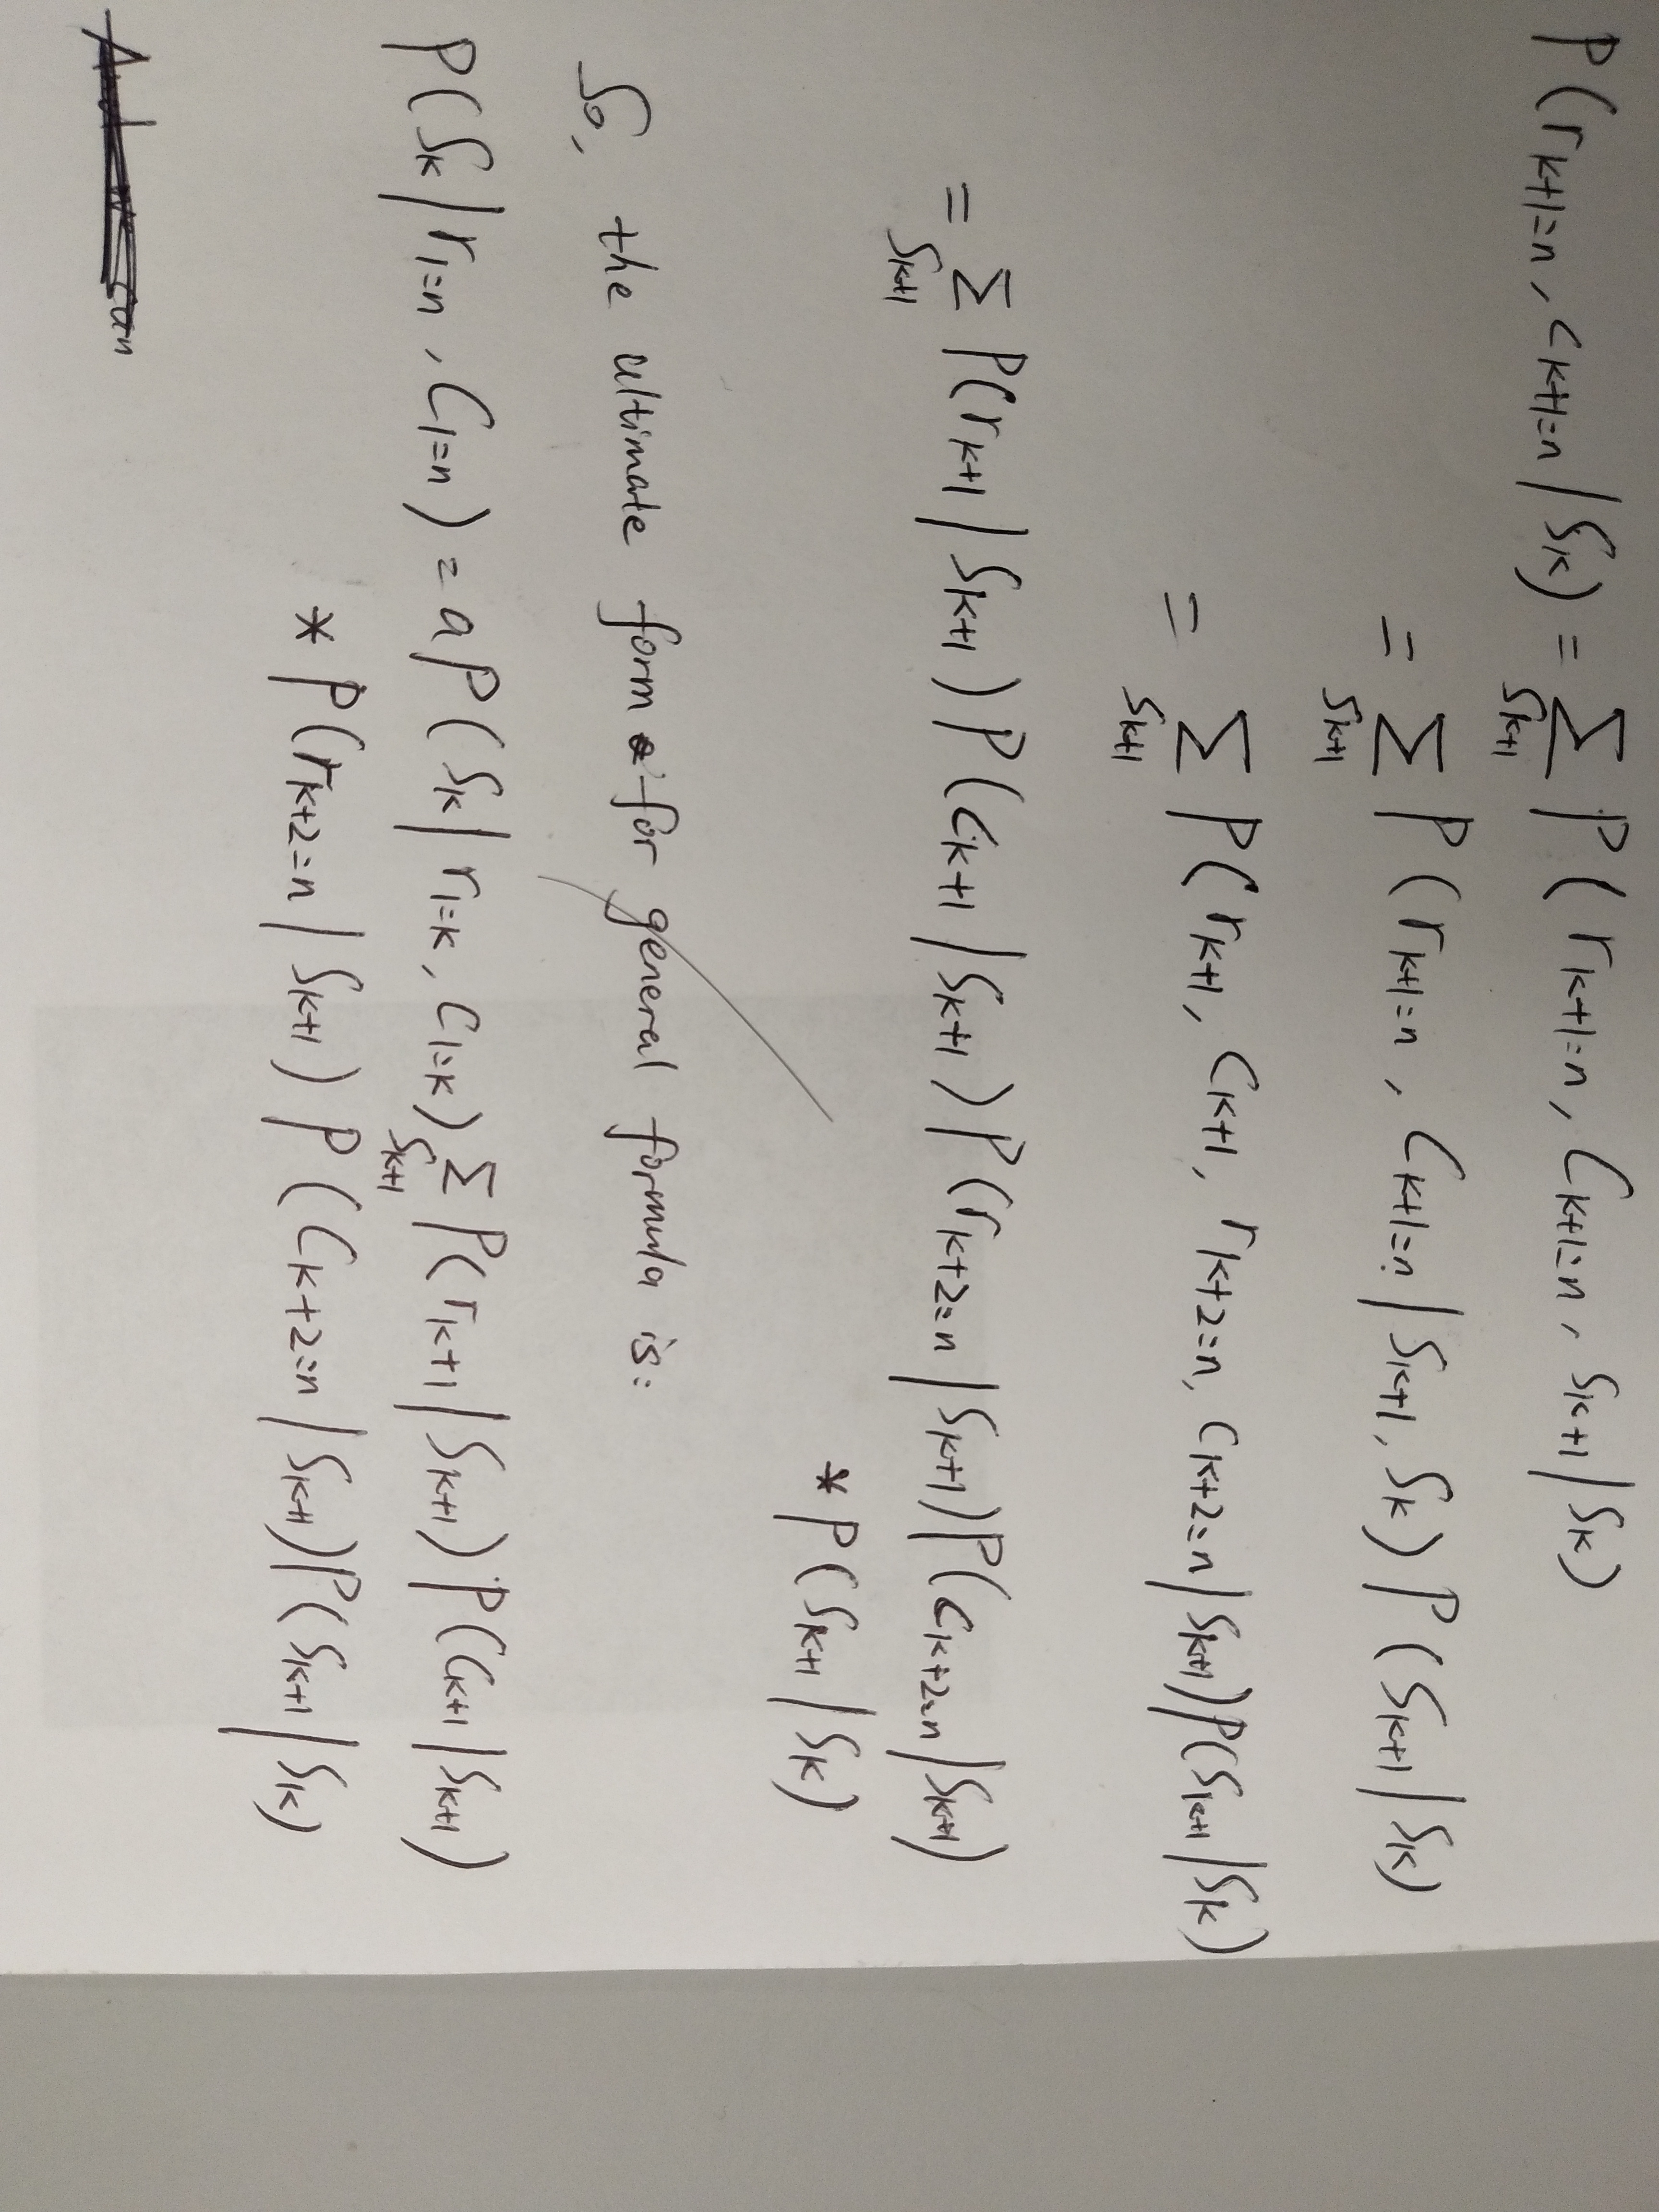 P(r_{k+1=n}, c_{k+1=n} | S_k) = Σ_{S_{k+1}} P(r_{k+1=n}, C_{k+1=n}, S_{k+1} | S_k)
= Σ_{S_{k+1}} P(r_{k+1=n}, C_{k+1=n} | S_{k+1}, S_k) P(S_{k+1} | S_k)
= Σ_{S_{k+1}} P(r_{k+1}, C_{k+1}, r_{k+2=n}, C_{k+2=n} | S_{k+1}) P(S_{k+1} | S_k)
= Σ_{S_{k+1}} P(r_{k+1} | S_{k+1}) P(c_{k+1} | S_{k+1}) P(r_{k+2=n} | S_{k+1}) P(c_{k+2=n} | S_{k+1})
* P(S_{k+1} | S_k)
So, the ultimate form for general formula is:
P(S_k | r_{1=n}, C_{1=n}) = a P(S_k | r_{1=k}, C_{1=k}) Σ_{S_{k+1}} P(r_{k+1} | S_{k+1}) P(C_{k+1} | S_{k+1})
* P(r_{k+2=n} | S_{k+1}) P(C_{k+2=n} | S_{k+1}) P(S_{k+1} | S_k)
And we can